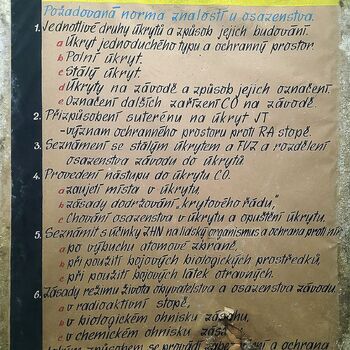 Požadovaná norma znalostí u osazenstva.
1. Jednotlivé druhy úkrytů a způsob jejich budování.
a Úkryt jednoduchého typu a ochranný prostor
b Polní úkryt.
c Stálý úkryt.
d Úkryty na závodě a způsob jejich označení.
e Označení dalších zařízení CO na závodě.
2. Přizpůsobení suterénu na úkryt JT
-význam ochranného prostoru proti RA stopě.
3. Seznámení se stálým úkrytem a TVZ a rozdělení
osazenstva závodu do úkrytů
4. Provedení nástupu do úkrytu CO.
a zaujetí místa v úkrytu,
b zásady dodržování "krytového řádu,"
c Chování osazenstva v úkrytu a opuštění úkrytu.
5. Seznámit s účinky ZHN na lidský organismus a ochrana proti nim
a po výbuchu atomové zbraně,
b při použití bojových biologických prostředků,
c při použití bojových látek otravných.
6. Zásady režimu života obyvatelstva a osazenstva závodu.
a v radioaktivní stopě.
b v biologickém ohnisku zásahu,
v chemickém ohnisku
způsobem se provádí a ochrana